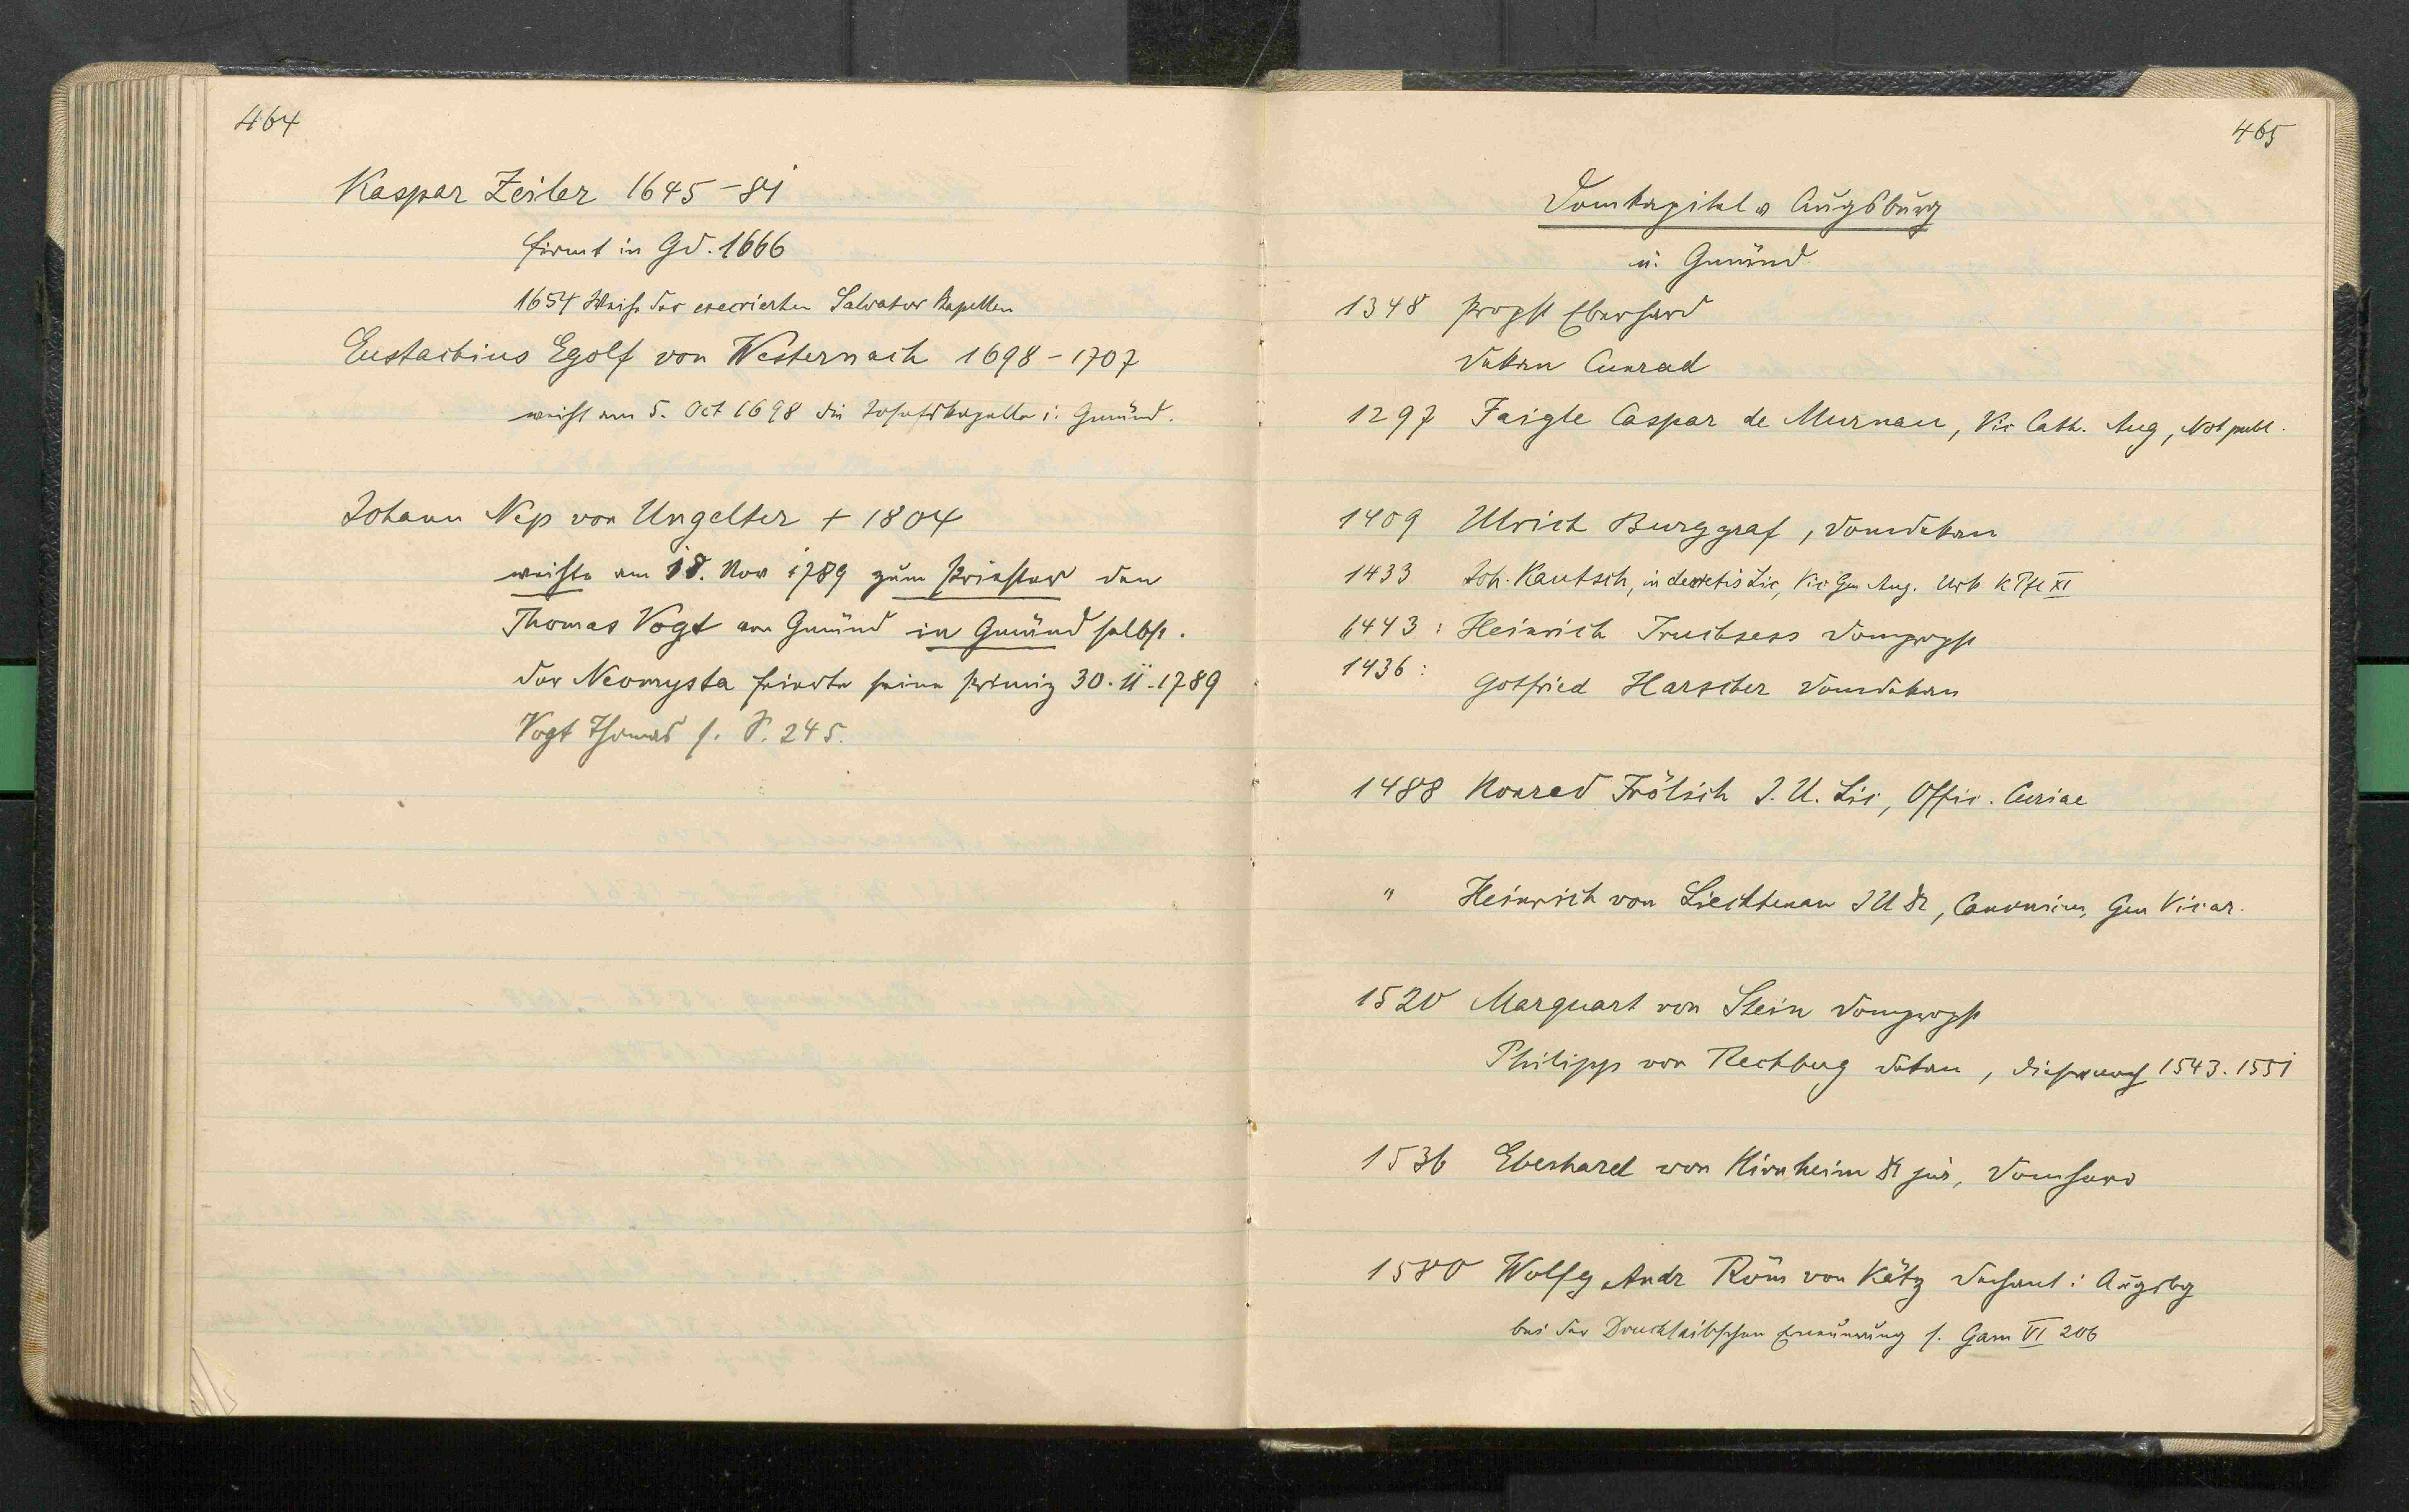 464
Kaspar Zeiler 1645-81
firmt in Gd. 1666
1654 Weihe der execrierten Salvator Kapellen
Eustachius Egolf von Westernach 1698-1707
weiht am 5. Oct 1698 die Josefskapelle i. Gmünd.
Johann Nep von Ungelter + 1804
weihte am 18. Nov 1789 zum Priester den
Thomas Vogt von Gmünd in Gmünd selbst.
der Neomysta feierte seine Primiz 30. 11. 1789
Vogt Thomas s. S. 245.
465
Domkapitel v Augsburg
u. Gmünd
1348 Propst Eberhard
Dekan Cunrad
1297 Faigle Caspar de Murnau, Vic Cath. Aug, Not publ.
1409 Ulrich Burggraf, Domdekan
1433 Joh. Kautsch, in decretis Lic, Vic Gen Aug. Urk K Pfl XI
1443: Heinrich Truchsess Dompropst
1436: Gotfried Harscher Domdekan
1488 Konrad Frölich I. U. Lic, Offic. Curiae
" Heinrich von Liechtenau I U Dr, Canonicus, Gen Vicar.
1520 Marquart von Stein Dompropst
Philipp von Rechberg Dekan, dieser auch 1543. 1551
1536 Eberhard von Hirnheim Dr jur, Domherr
1580 Wolfg Andr Röm von Kötz Dechant i Augsbg
bei der Drucklaibschen Ernennung s. Gam VI 206